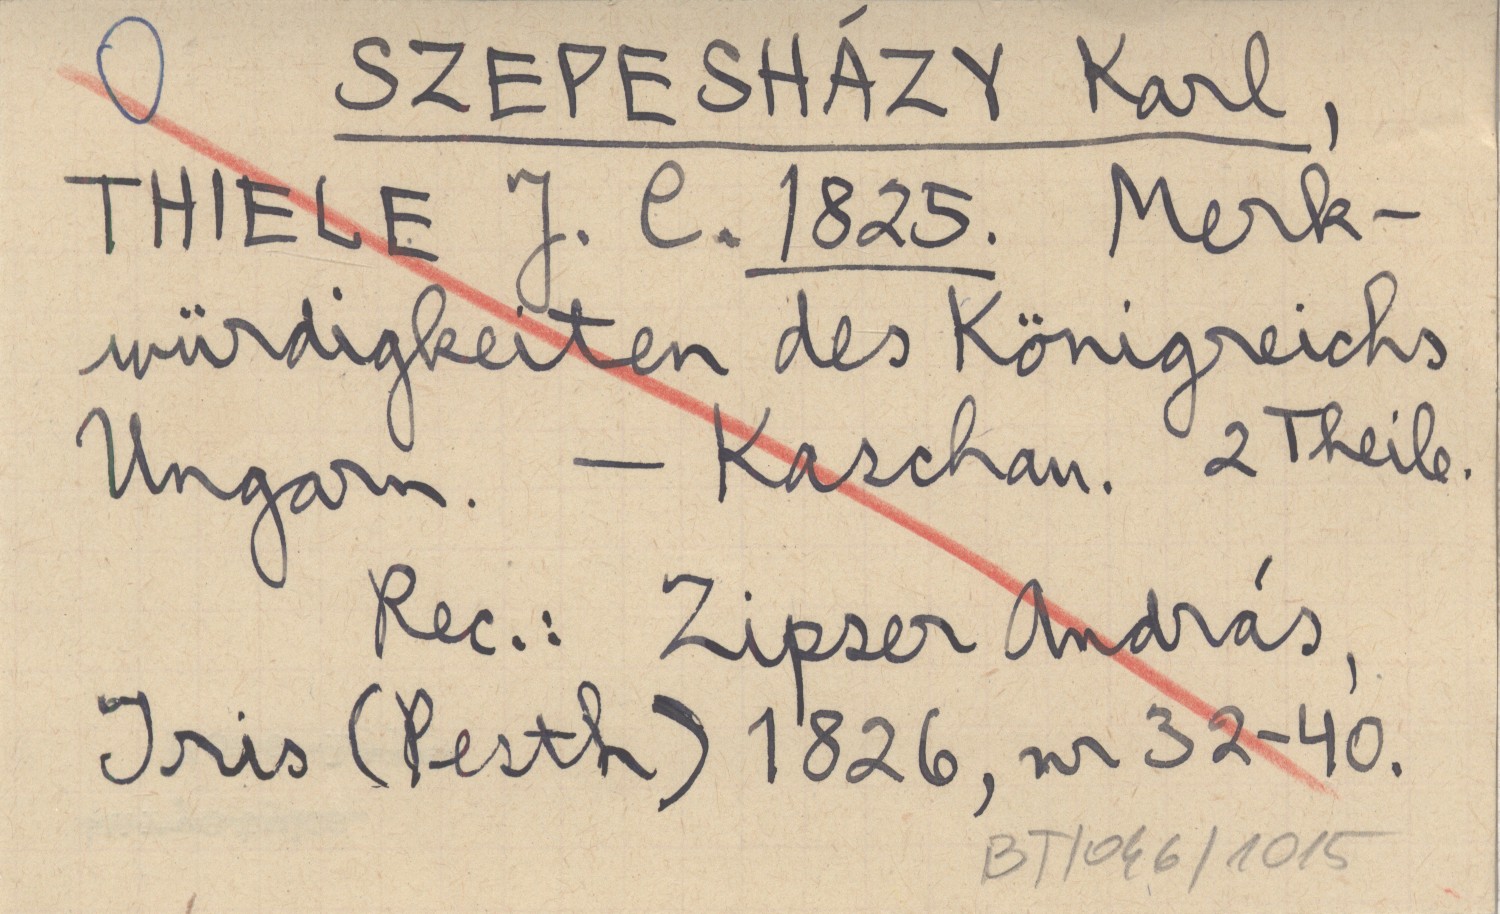 SZEPESHÁZY Karl,
THIELE J. C. 1825. Merk-
würdigkeiten des Königreichs
Ungarn. — Kaschau. 2 Theile.
Rec.: Zipser András,
Iris (Pesth) 1826, nr 32-40.
BT/046/1015